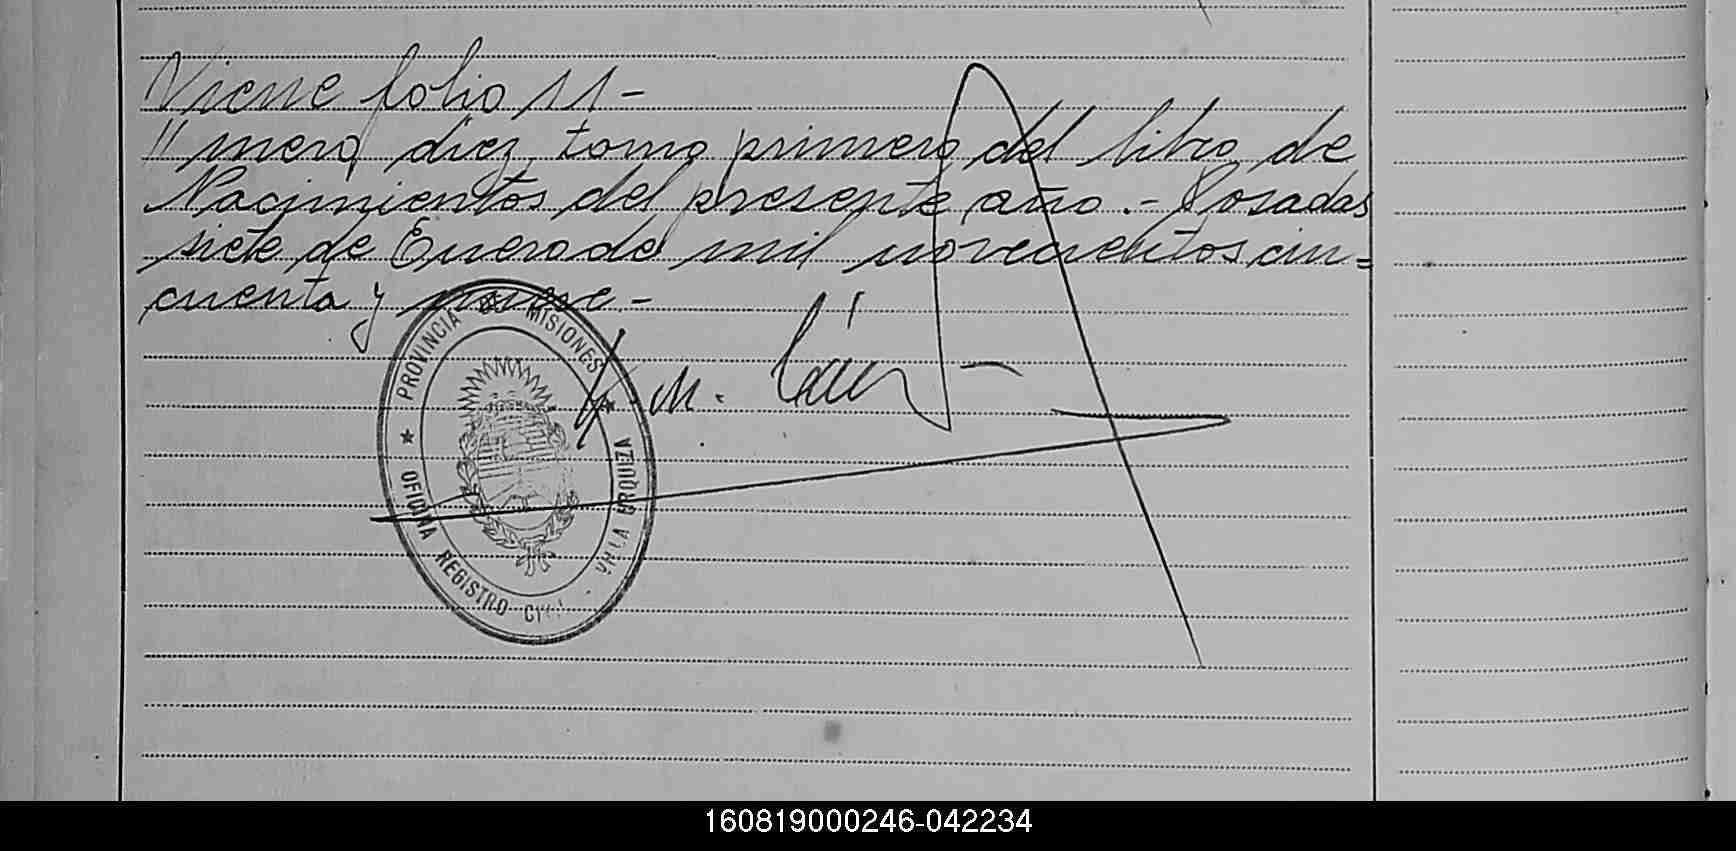 Viene folio 11-
"mero diez, tomo primero del libro de
Nacimientos del presente año.- Posadas
siete de Enero de mil novecientos cin=
cuenta y nueve.-
PROVINCIA DE MISIONES
M.
OFICINA REGISTRO CIVIL
VILLA URQUIZA
160819000246-042234